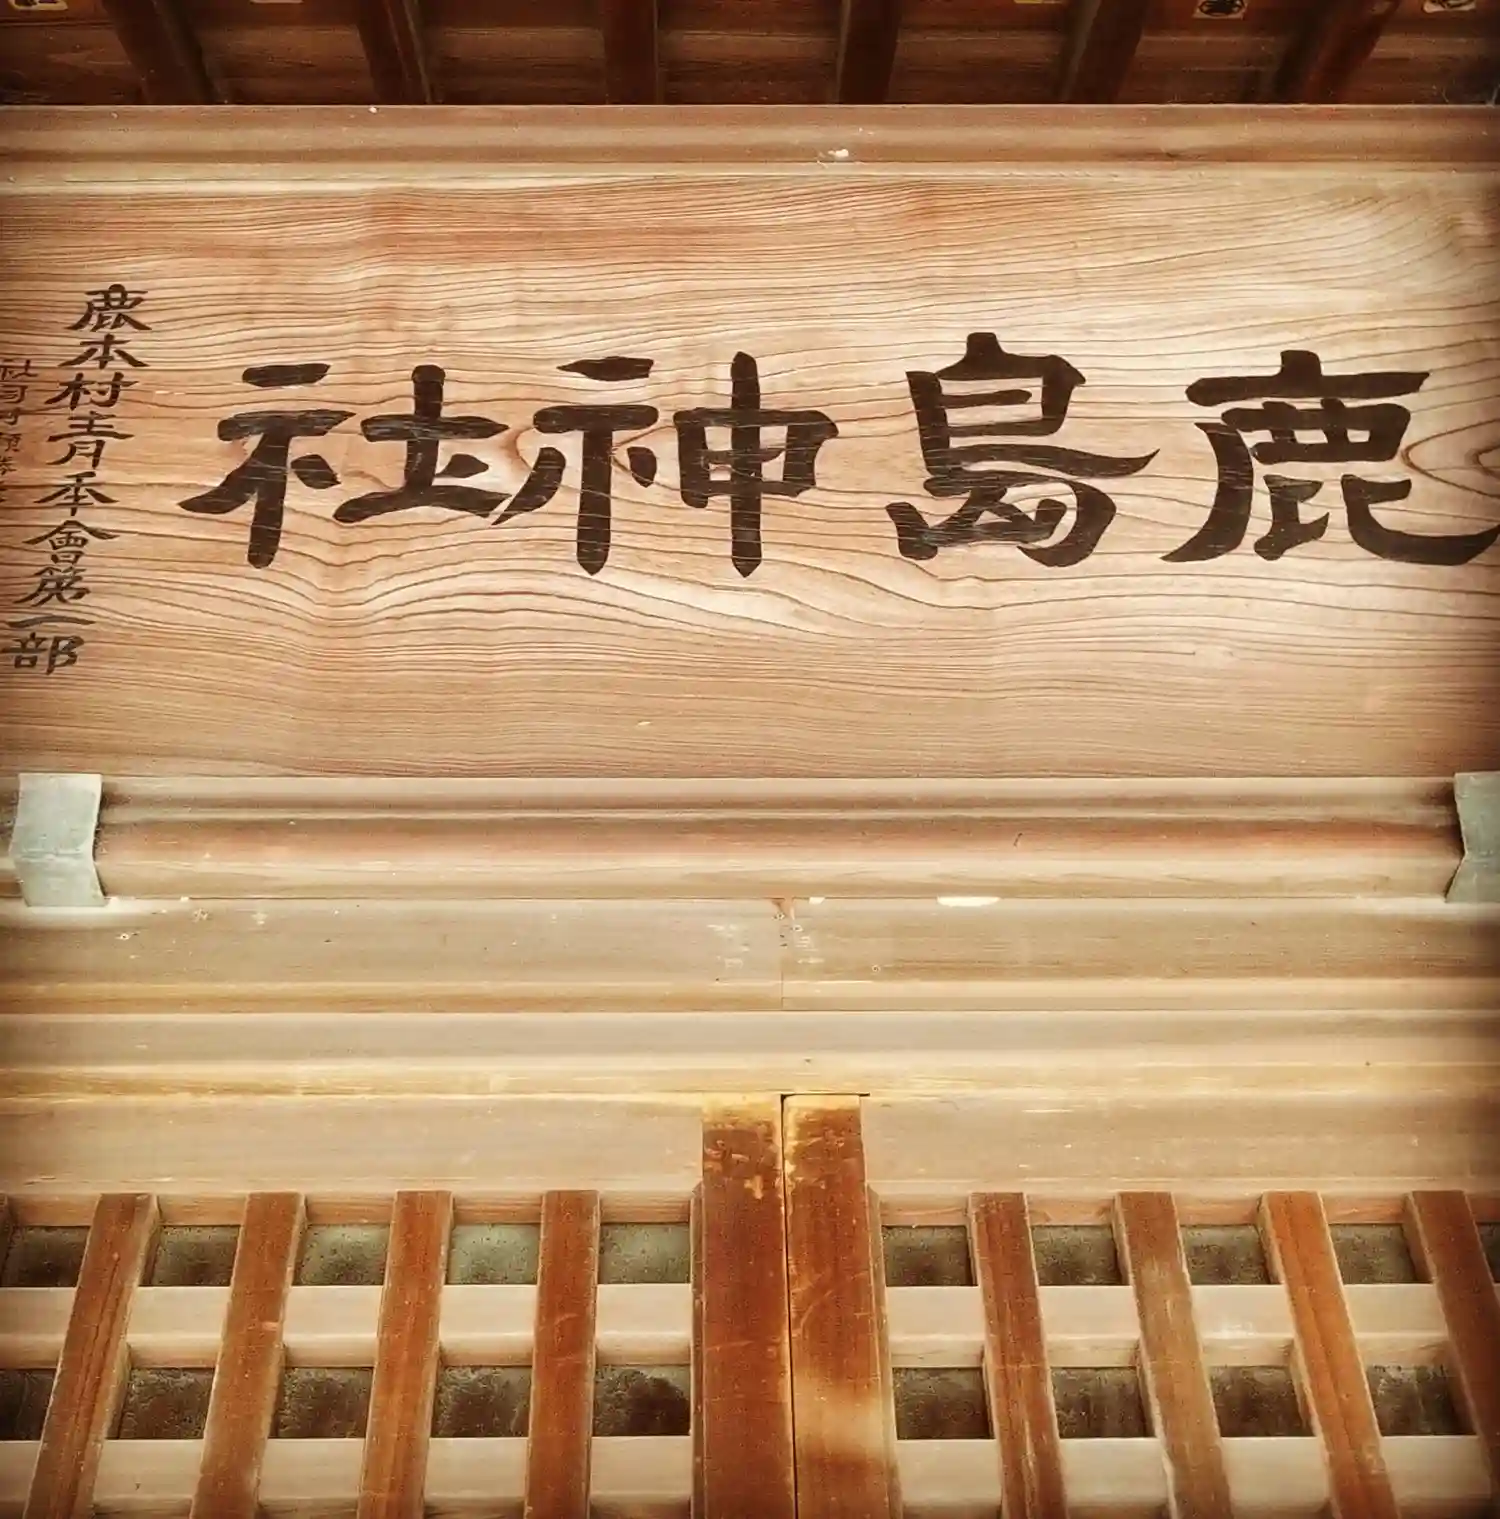 鹿島神社
鹿本村青年會第一部